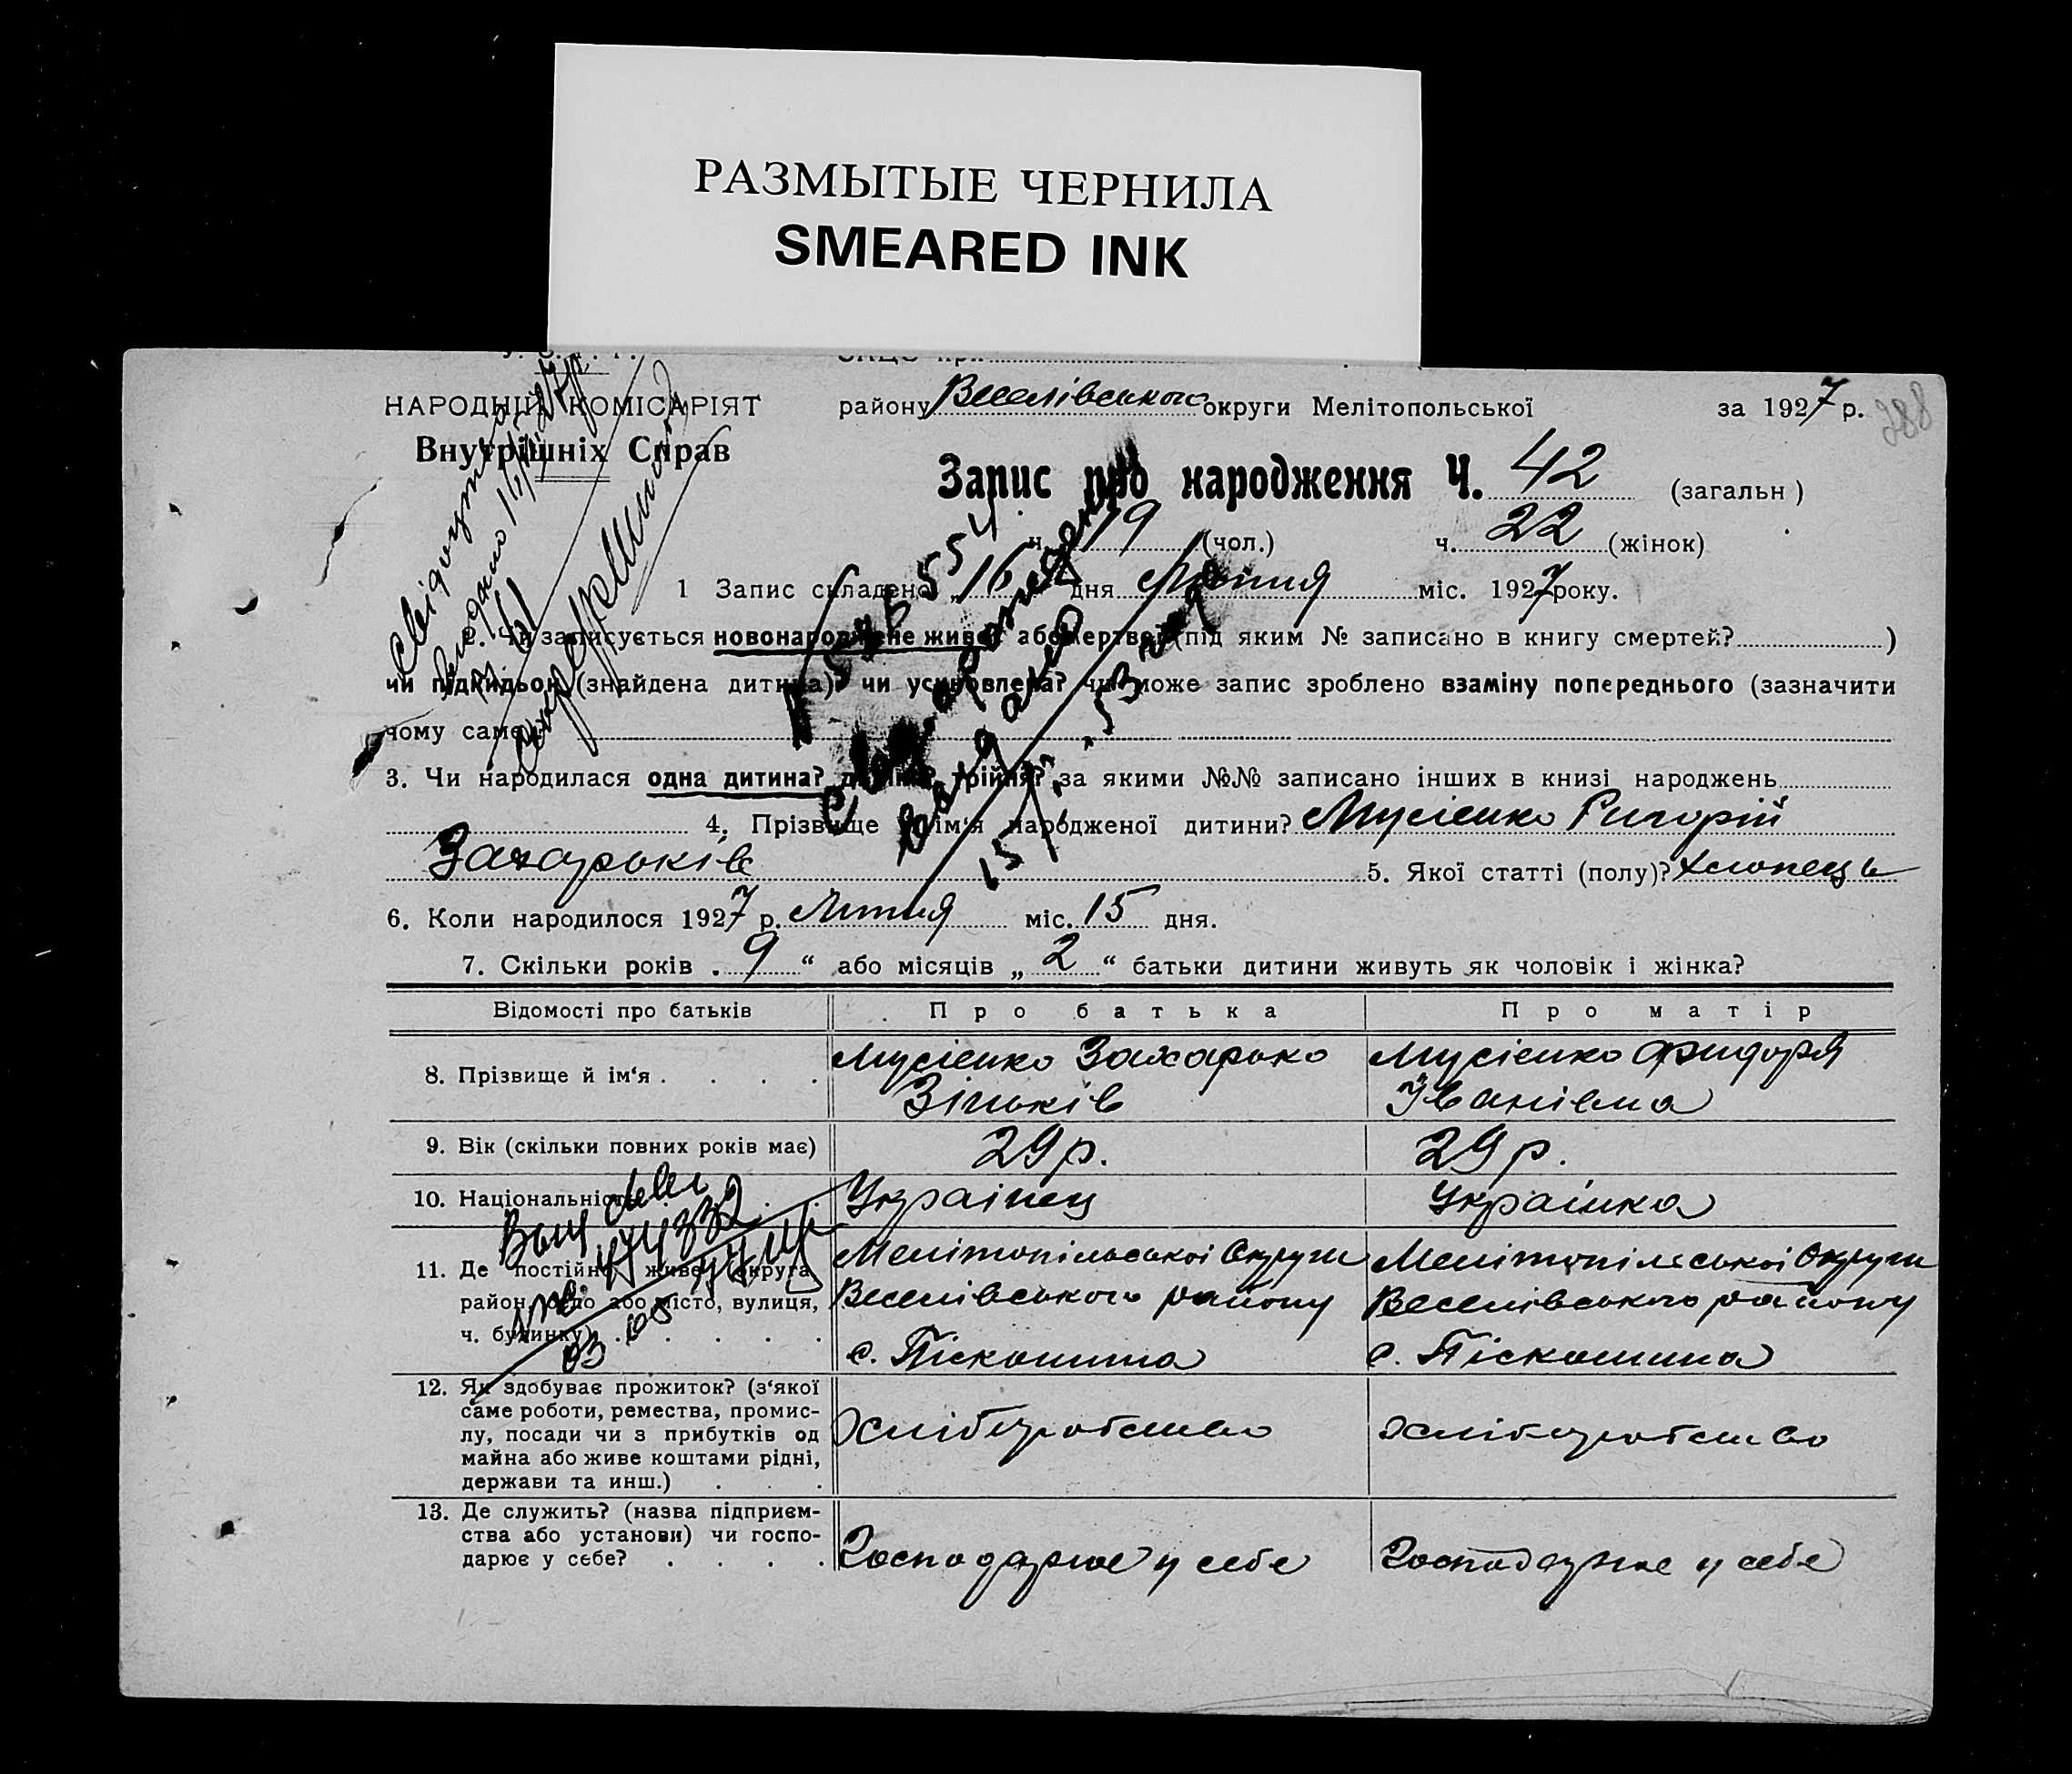 РАЗМЫТЫЕ ЧЕРНИЛА
SMEARED INK
НАРОДНІЙ КОМІСАРІЯТ
Внутрішніх Справ
району Веселівського округи Мелітопольської за 1927 р.
288
Запис про народження Ч. 42 (загальн)
ч. 19 (чол.) ч. 22 (жінок)
1 Запис складено „16“ дня Лютия міс. 1927 року.
2. Чи записується новонароджене живе? або мертве? (під яким № записано в книгу смертей? )
чи підкидьок (знайдена дитина)? чи усиновлена? чи може запис зроблено взаміну попереднього (зазначити
чому саме)
3. Чи народилася одна дитина? двійня? трійня? за якими №№ записано інших в книзі народжень
4. Прізвище й ім'я народженої дитини? Мусієнко Григорій
Захарьків 5. Якої статті (полу)? Хлопець
6. Коли народилося 1927 р. Лютия міс. 15 дня.
7. Скільки років „9“ або місяців „2“ батьки дитини живуть як чоловік і жінка?
Відомості про батьків Про батька Про матір
8. Прізвище й ім'я . . . . Мусієнко Захарько Зіньків Мусієнко Фидоря Іванівна
9. Вік (скільки повних років має) 29 р. 29 р.
10. Національність Українец Українка
11. Де постійно живе (округа, район, село або місто, вулиця, ч. будинку) . . . . . Мелітопільської Округи Веселівського району с. Піскошина Мелітопільської Округи Веселівського району с. Піскошина
12. Як здобуває прожиток? (з'якої
саме роботи, ремества, промис-
лу, посади чи з прибутків од
майна або живе коштами рідні,
держави та инш.) . . . Хліборобство Хліборобство
13. Де служить? (назва підприєм-
ства або установи) чи госпо-
дарює у себе? . . . . Господарює у себе Господарює у себе